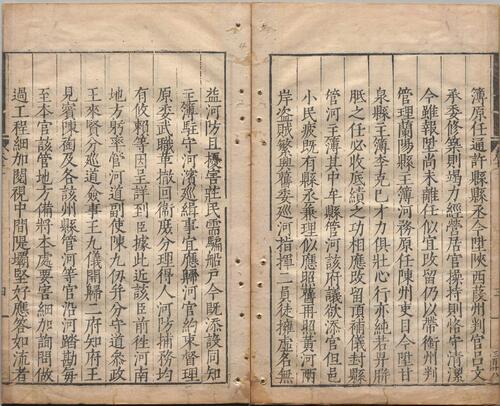 簿原任通許縣縣丞今陞陝西葭州判官呂文
承委修築則竭力經營居官操持則恪守清潔
今雖報陞尚未離任似宜改留仍以帶銜州判
管理蘭陽縣主簿河務原任陳州吏目今陞甘
泉縣主簿李克己才力俱壯心行亦純若畀聯
胝之任必收底績之功相應改留頂補儀封縣
管河主簿其中牟縣管河該府議欲添官但邑
小民疲既有縣丞兼理似應照舊再照黃河兩
岸盜賊繁興舊委巡河指揮二員徒擁虛名無
益河防且擾害莊民需騙船戶今既添設同知
主簿駐守河濱巡緝事宜應歸河官約束督理
原委武職革撤回衛庶分理得人河防捕務均
有攸賴等因呈詳到臣據此近該臣前徃河南
地方躬率管河道副使陳九仞并分守道參政
王來賢分巡道僉事王九儀開歸二府知府王
見賓陳衡及各該州縣管河等官沿河踏勘每
至本官該管地方備將本處要害細加詢問做
過工程細加閱視中間隄壩堅好應答如流者
四